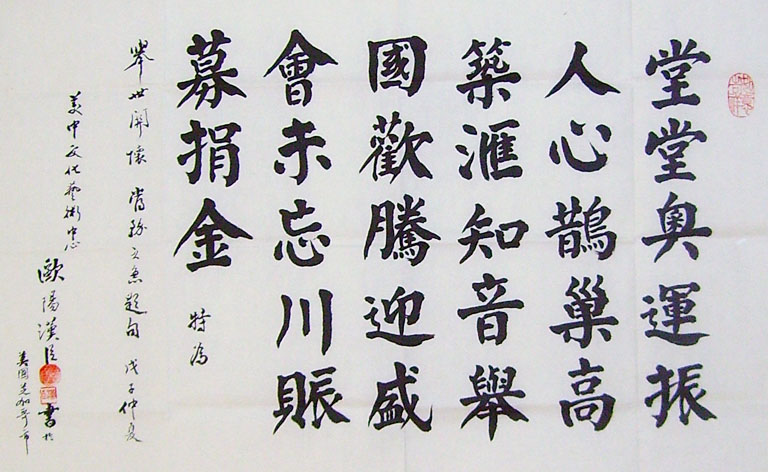 堂堂奧運振
人心鵲巢高
築滙知音舉
國歡騰迎盛
會未忘川賑
募捐金 特為
舉世開懷 題句 戊子仲夏
美中文化藝術中心 歐陽 書於
美國芝加哥市